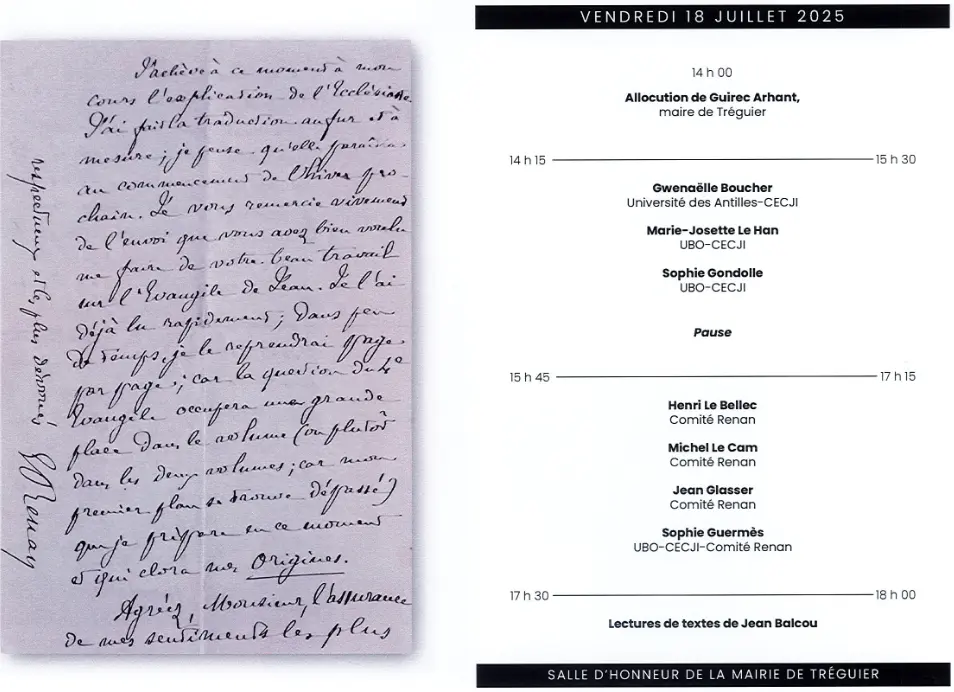 J'achève à ce moment à mon
cours l'explication de l'Ecclésiaste.
J'ai fait la traduction au fur et à
mesure ; je pense qu'elle paraîtra
au commencement de l'hiver pro-
chain. Je vous remercie vivement
de l'envoi que vous avez bien voulu
me faire de votre beau travail
sur l'Evangile de Jean. Je l'ai
déjà lu rapidement ; dans peu
de temps, je le reprendrai page
par page ; car la question du 4e
Evangile occupera une grande
place dans le volume (ou plutôt
dans les deux volumes ; car mon
premier plan se trouve dépassé)
que je prépare en ce moment
et qui clora mes Origines.
Agréez, Monsieur, l'assurance
de mes sentiments les plus
respectueux et les plus dévoués
E Renan
VENDREDI 18 JUILLET 2025
14 h 00
Allocution de Guirec Arhant,
maire de Tréguier
14 h 15 15 h 30
Gwenaëlle Boucher
Université des Antilles-CECJI
Marie-Josette Le Han
UBO-CECJI
Sophie Gondolle
UBO-CECJI
Pause
15 h 45 17 h 15
Henri Le Bellec
Comité Renan
Michel Le Cam
Comité Renan
Jean Glasser
Comité Renan
Sophie Guermès
UBO-CECJI-Comité Renan
17 h 30 18 h 00
Lectures de textes de Jean Balcou
SALLE D'HONNEUR DE LA MAIRIE DE TRÉGUIER